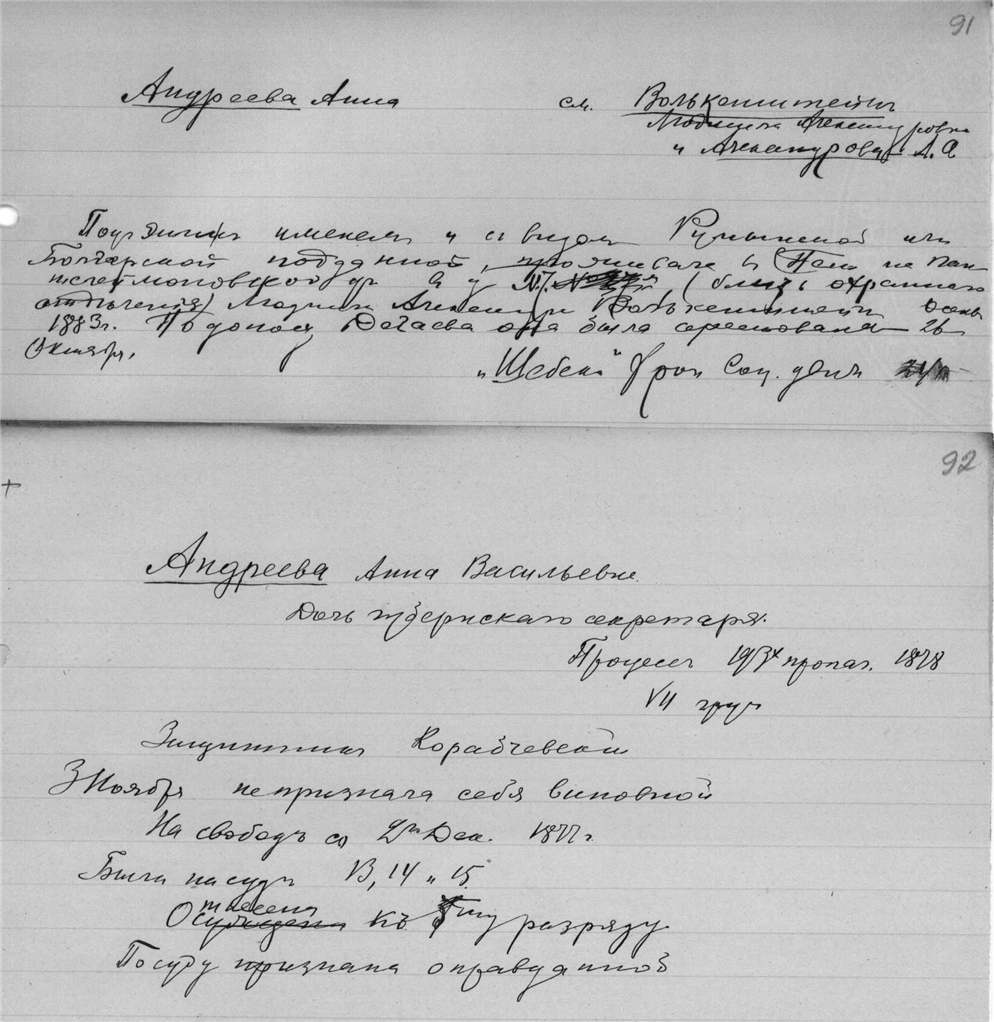 91
Андреева Анна см. Волькенштейнъ
Людмила Александровна
и Александрова Л. А
Подъ этимъ именемъ и съ видомъ Румынской или
Болгарской подданной, прописалась въ
(близь охраннаго
отдѣленія) Людмила Волькенштейнъ осенью
1883г. По доносу Дегаева она была арестована 26
Октября.
"Щебень" Соц. движ
92
+
Андреева Анна Васильевна.
Дочь губернскаго секретаря.
Процессъ 193х пропаг. 1878
VII груп
Защитникъ Корабчевскій
3 Ноября не признала себя виновной
На свободѣ со 2го Дек. 1877 г.
Была на судѣ 13, 14 и 15.
Отнесена къ разряду
По суду признана оправданной